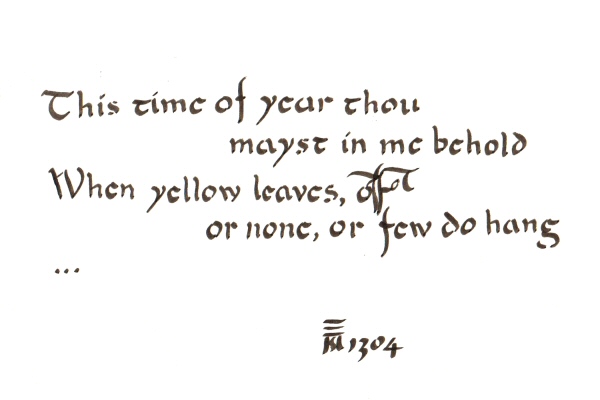 This time of year thou
mayst in me behold
When yellow leaves,
or none, or few do hang
...
1304